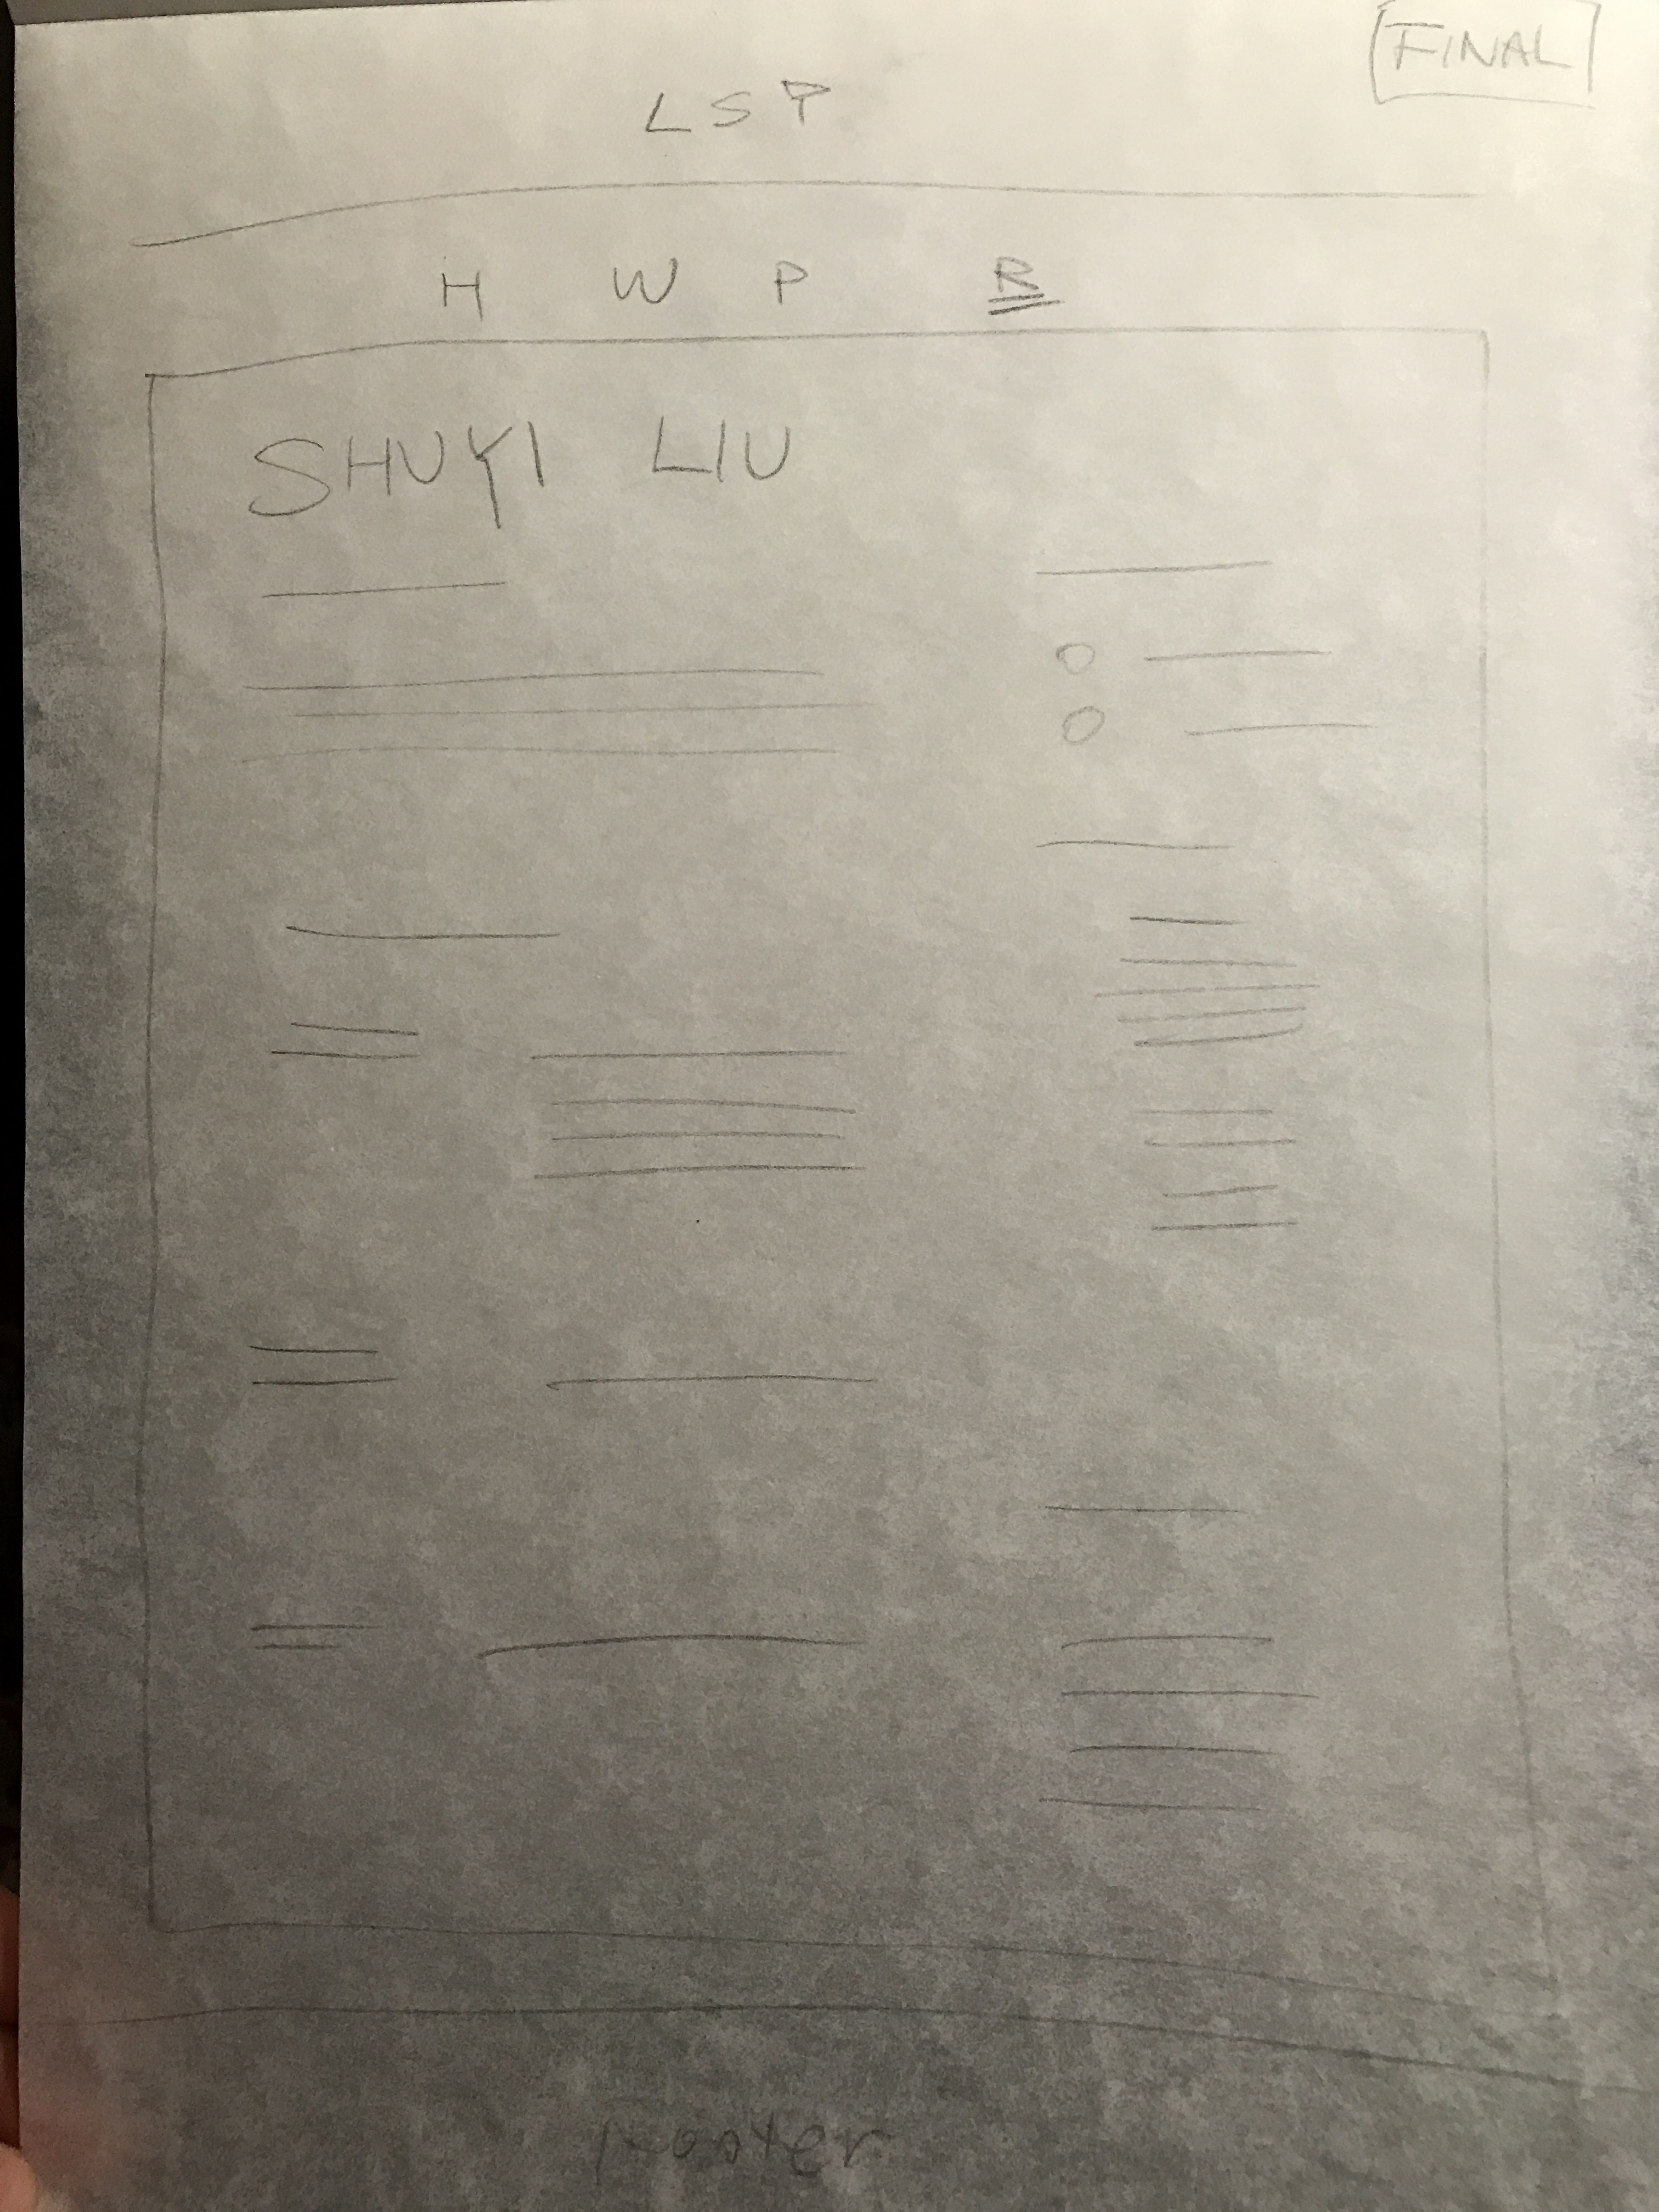 FINAL
LSP
H W P B
SHUYI LIU
Footer